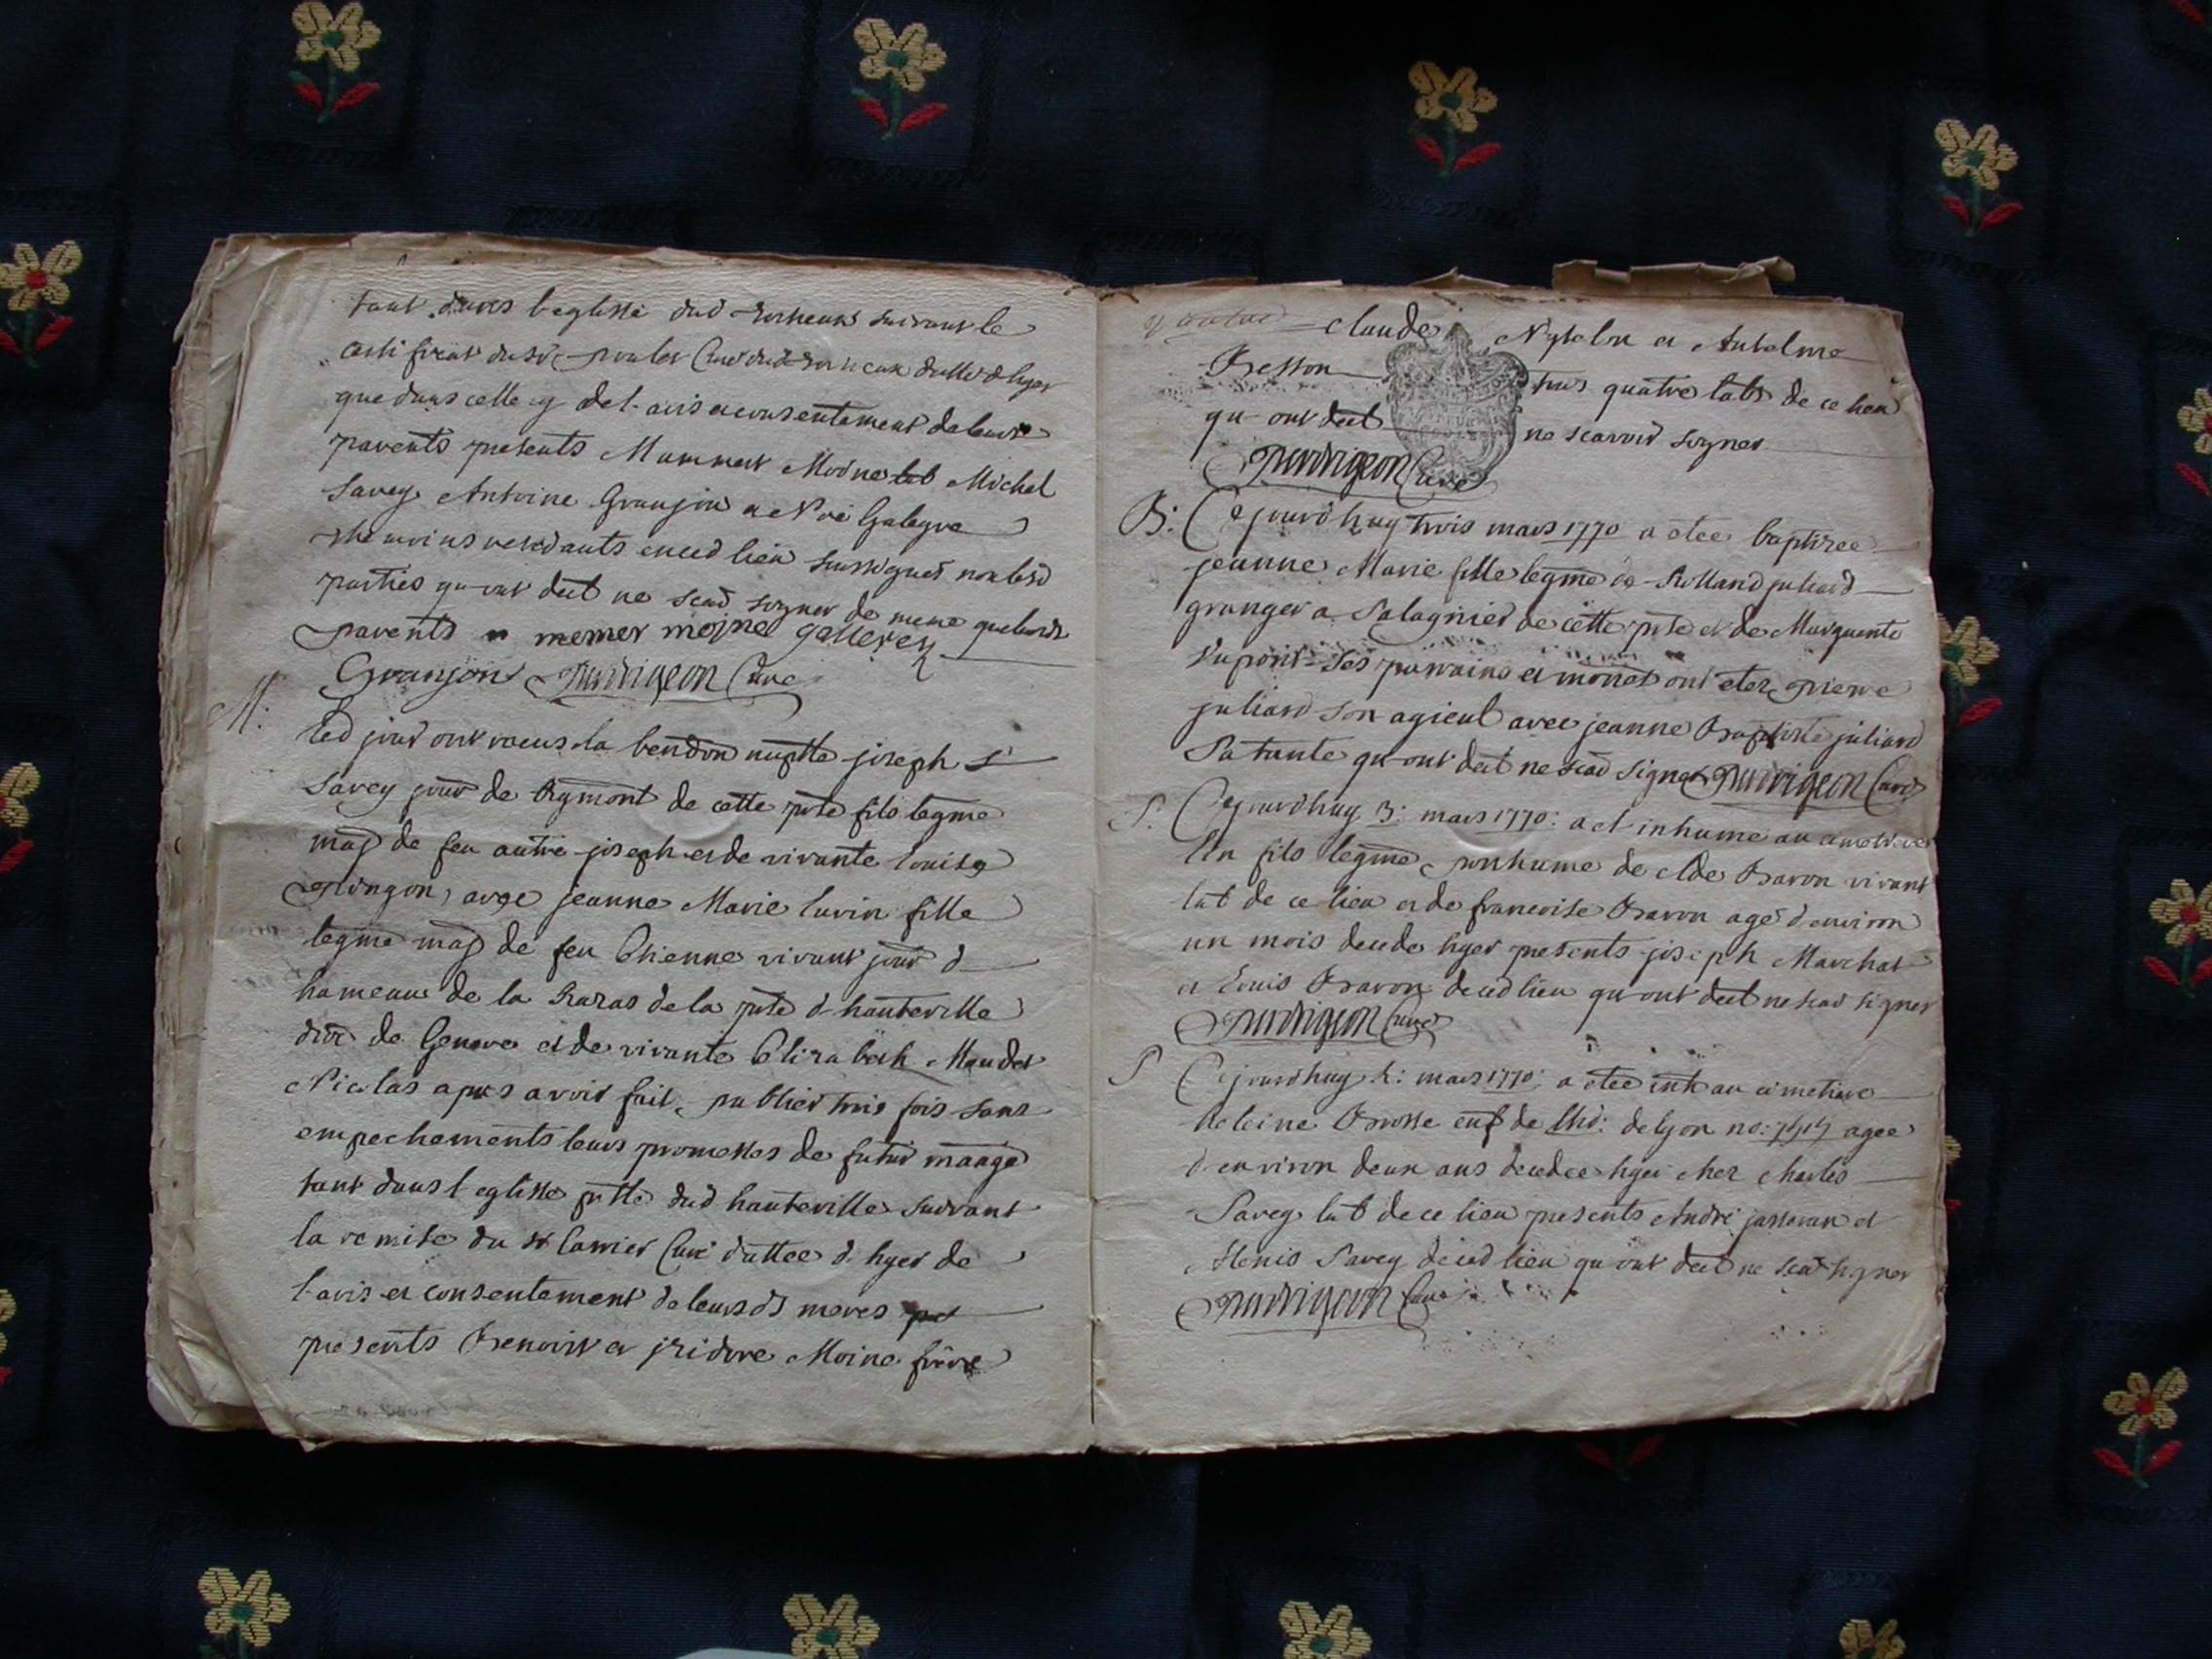 tant dans l'eglisse dud suivant le
certificat du sr Curé dud d'hyer
que dans celle cy de l'avis et consentement de leurs
parents presents Mammert Moine Michel
Savey Antoine Granjon et Galeyre
residants aud lieu sussignés non lesd
parties qu'ont deet ne scad signer de meme que leurds
parents memer mojne gallerey
Granjon Curé
M:
led jour ont receus la bendon nuptle joseph
Savey jour de de cette pste fils legme
maj de feu autre joseph et de vivante louise
avec jeanne Marie luvin fille
legme maj de feu Etienne vivant jour d
hameau de la de la pste d hauteville
dioc de Geneve et de vivante Elizabeth Maudet
Nicolas apres avoir fait publier trois fois sans
empechements leurs promesses de futur maage
tant dans l eglisse dud hauteville suivant
la remise du sr Curé dattee d hyer de
l'avis et consentement de leursds meres
presents Benoist et jzidore Moine frere
Claude et Antelme
Besson tous quatre labs de ce lieu
qu ont deet ne scavoir signer
Curé
B: Cejourdhuy trois mars 1770 a etee baptizee
jeanne Marie fille legme de Rolland juliard
granger a Salagnier de cette pste et de Marguerite
Dupont Ses parrains et ont etez pierre
juliard son agieul avec jeanne Baptiste juliard
Sa tante qu ont deet ne scad signer Curé
S. Cejourdhuy 3: mars 1770: a et inhume au cimetiere
Un fils legme de Clde Baron vivant
lab de ce lieu et de francoise Baron agé d environ
un mois decede hyer presents joseph Marchat
et Louis Baron decid lieu qu ont deet ne scad signer
Curé
S Cejourdhuy 4: mars 1770: a etee inh au cimetiere
heleine Brosse enf de lhd: de lyon no: agee
d environ deux ans decedee hyer chez charles
Savey lab de ce lieu presents André et
Denis Savey decid lieu qu ont deet ne scad signer
Curé